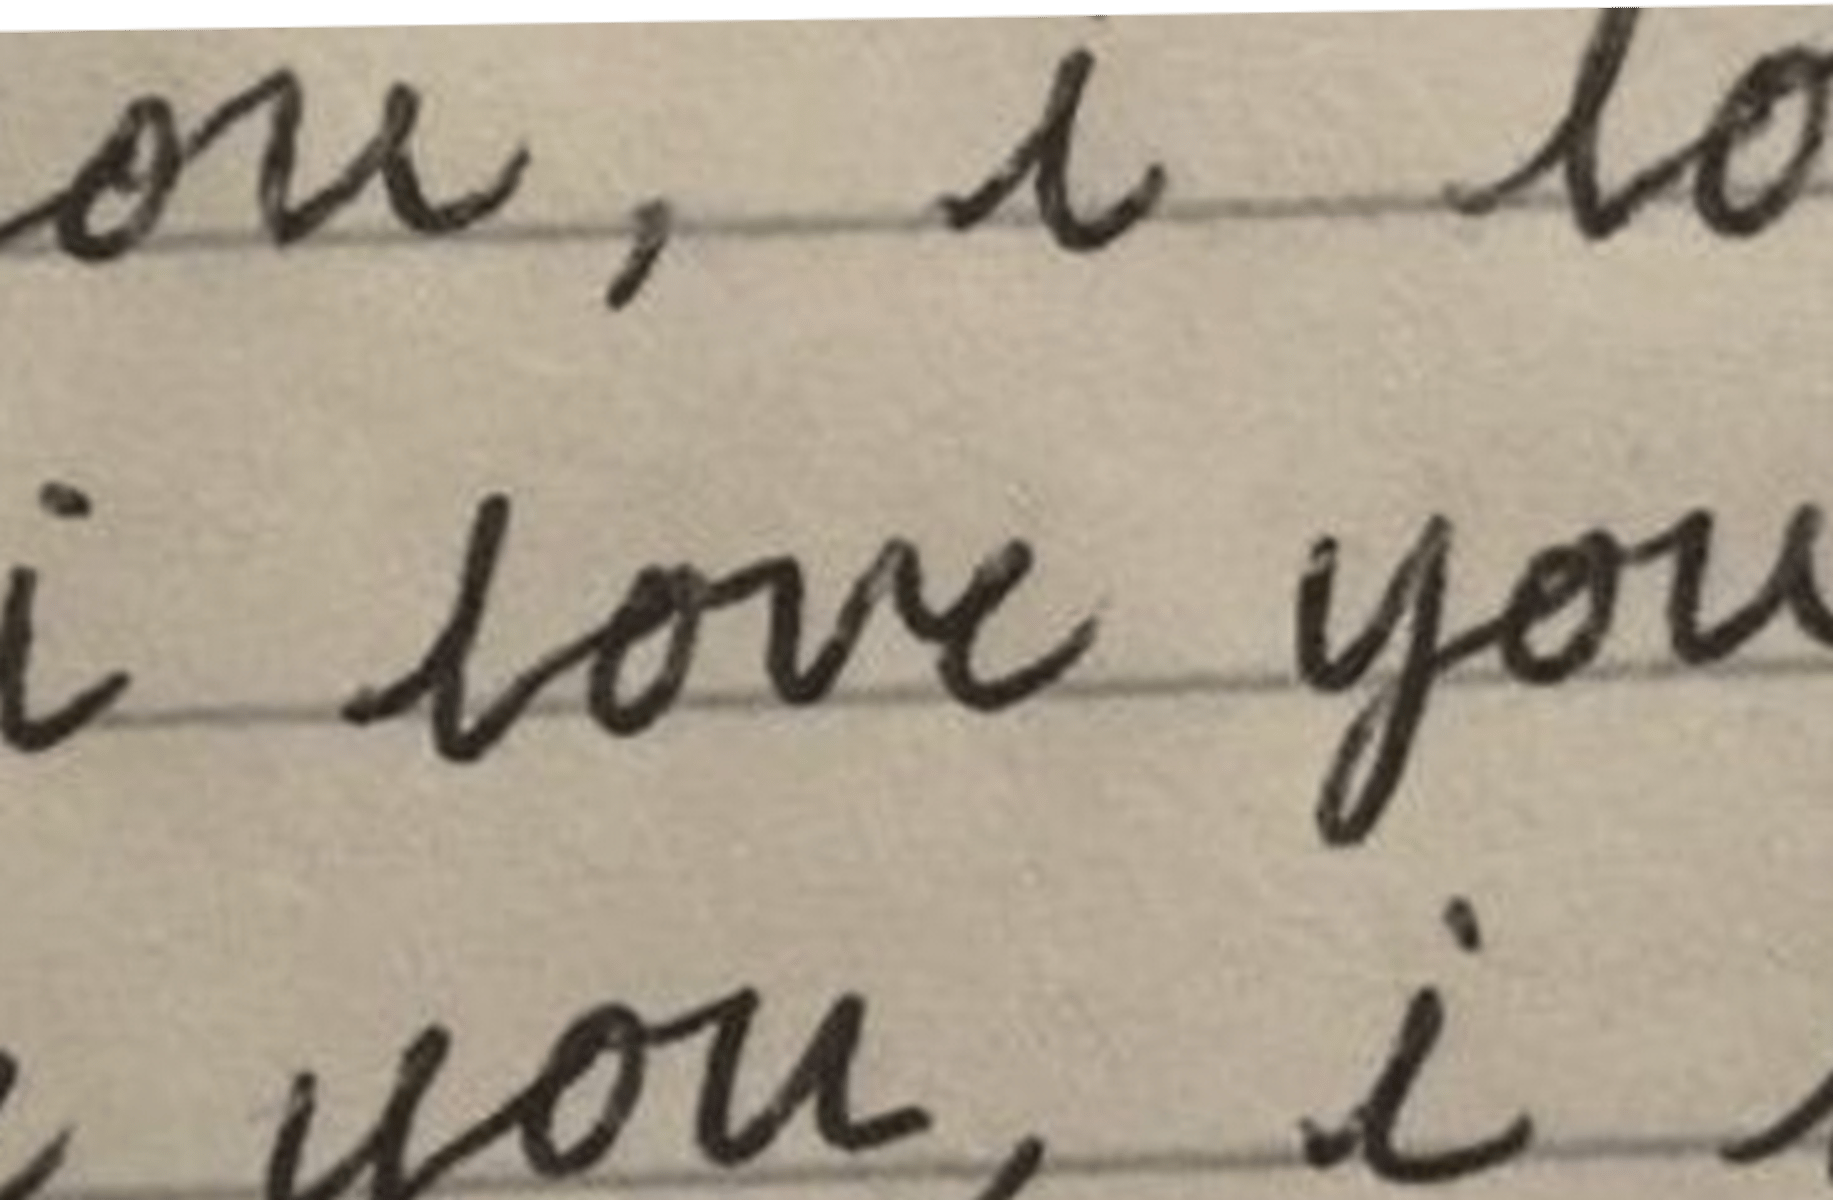 ou, i lo
i love you
you, i